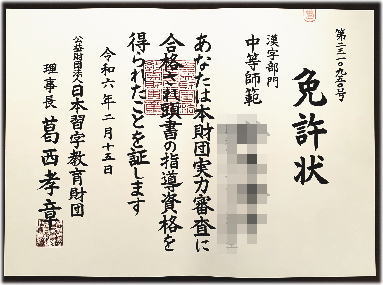 第二三一〇九五〇号
免許状
漢字部門
中等師範
あなたは本財団実力審査に
合格され頭書の指導資格を
得られたことを証します
令和六年二月十五日
公益財団法人日本習字教育財団
理事長 葛西孝章